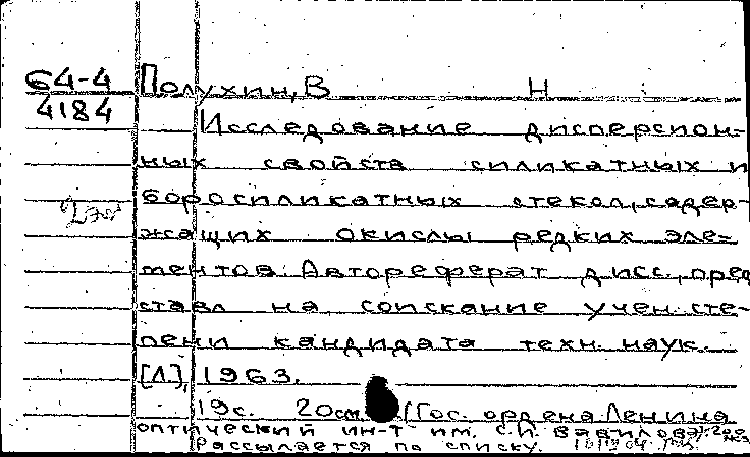 64-4 Полухин, В Н
4184
Исследование дисперсион-
ных свойств силикатных и
боросиликатных стекол, содер-
жащих окислы редких эле-
ментов. Автореферат дисс., пред
ставл на соискание учен. сте-
пени кандидата техн. наук.
[Л.], 1963.
19с. 20см. (Гос. ордена Ленина
оптический ин-т им. С.И. Вавилова). 200
Рассылается по списку.